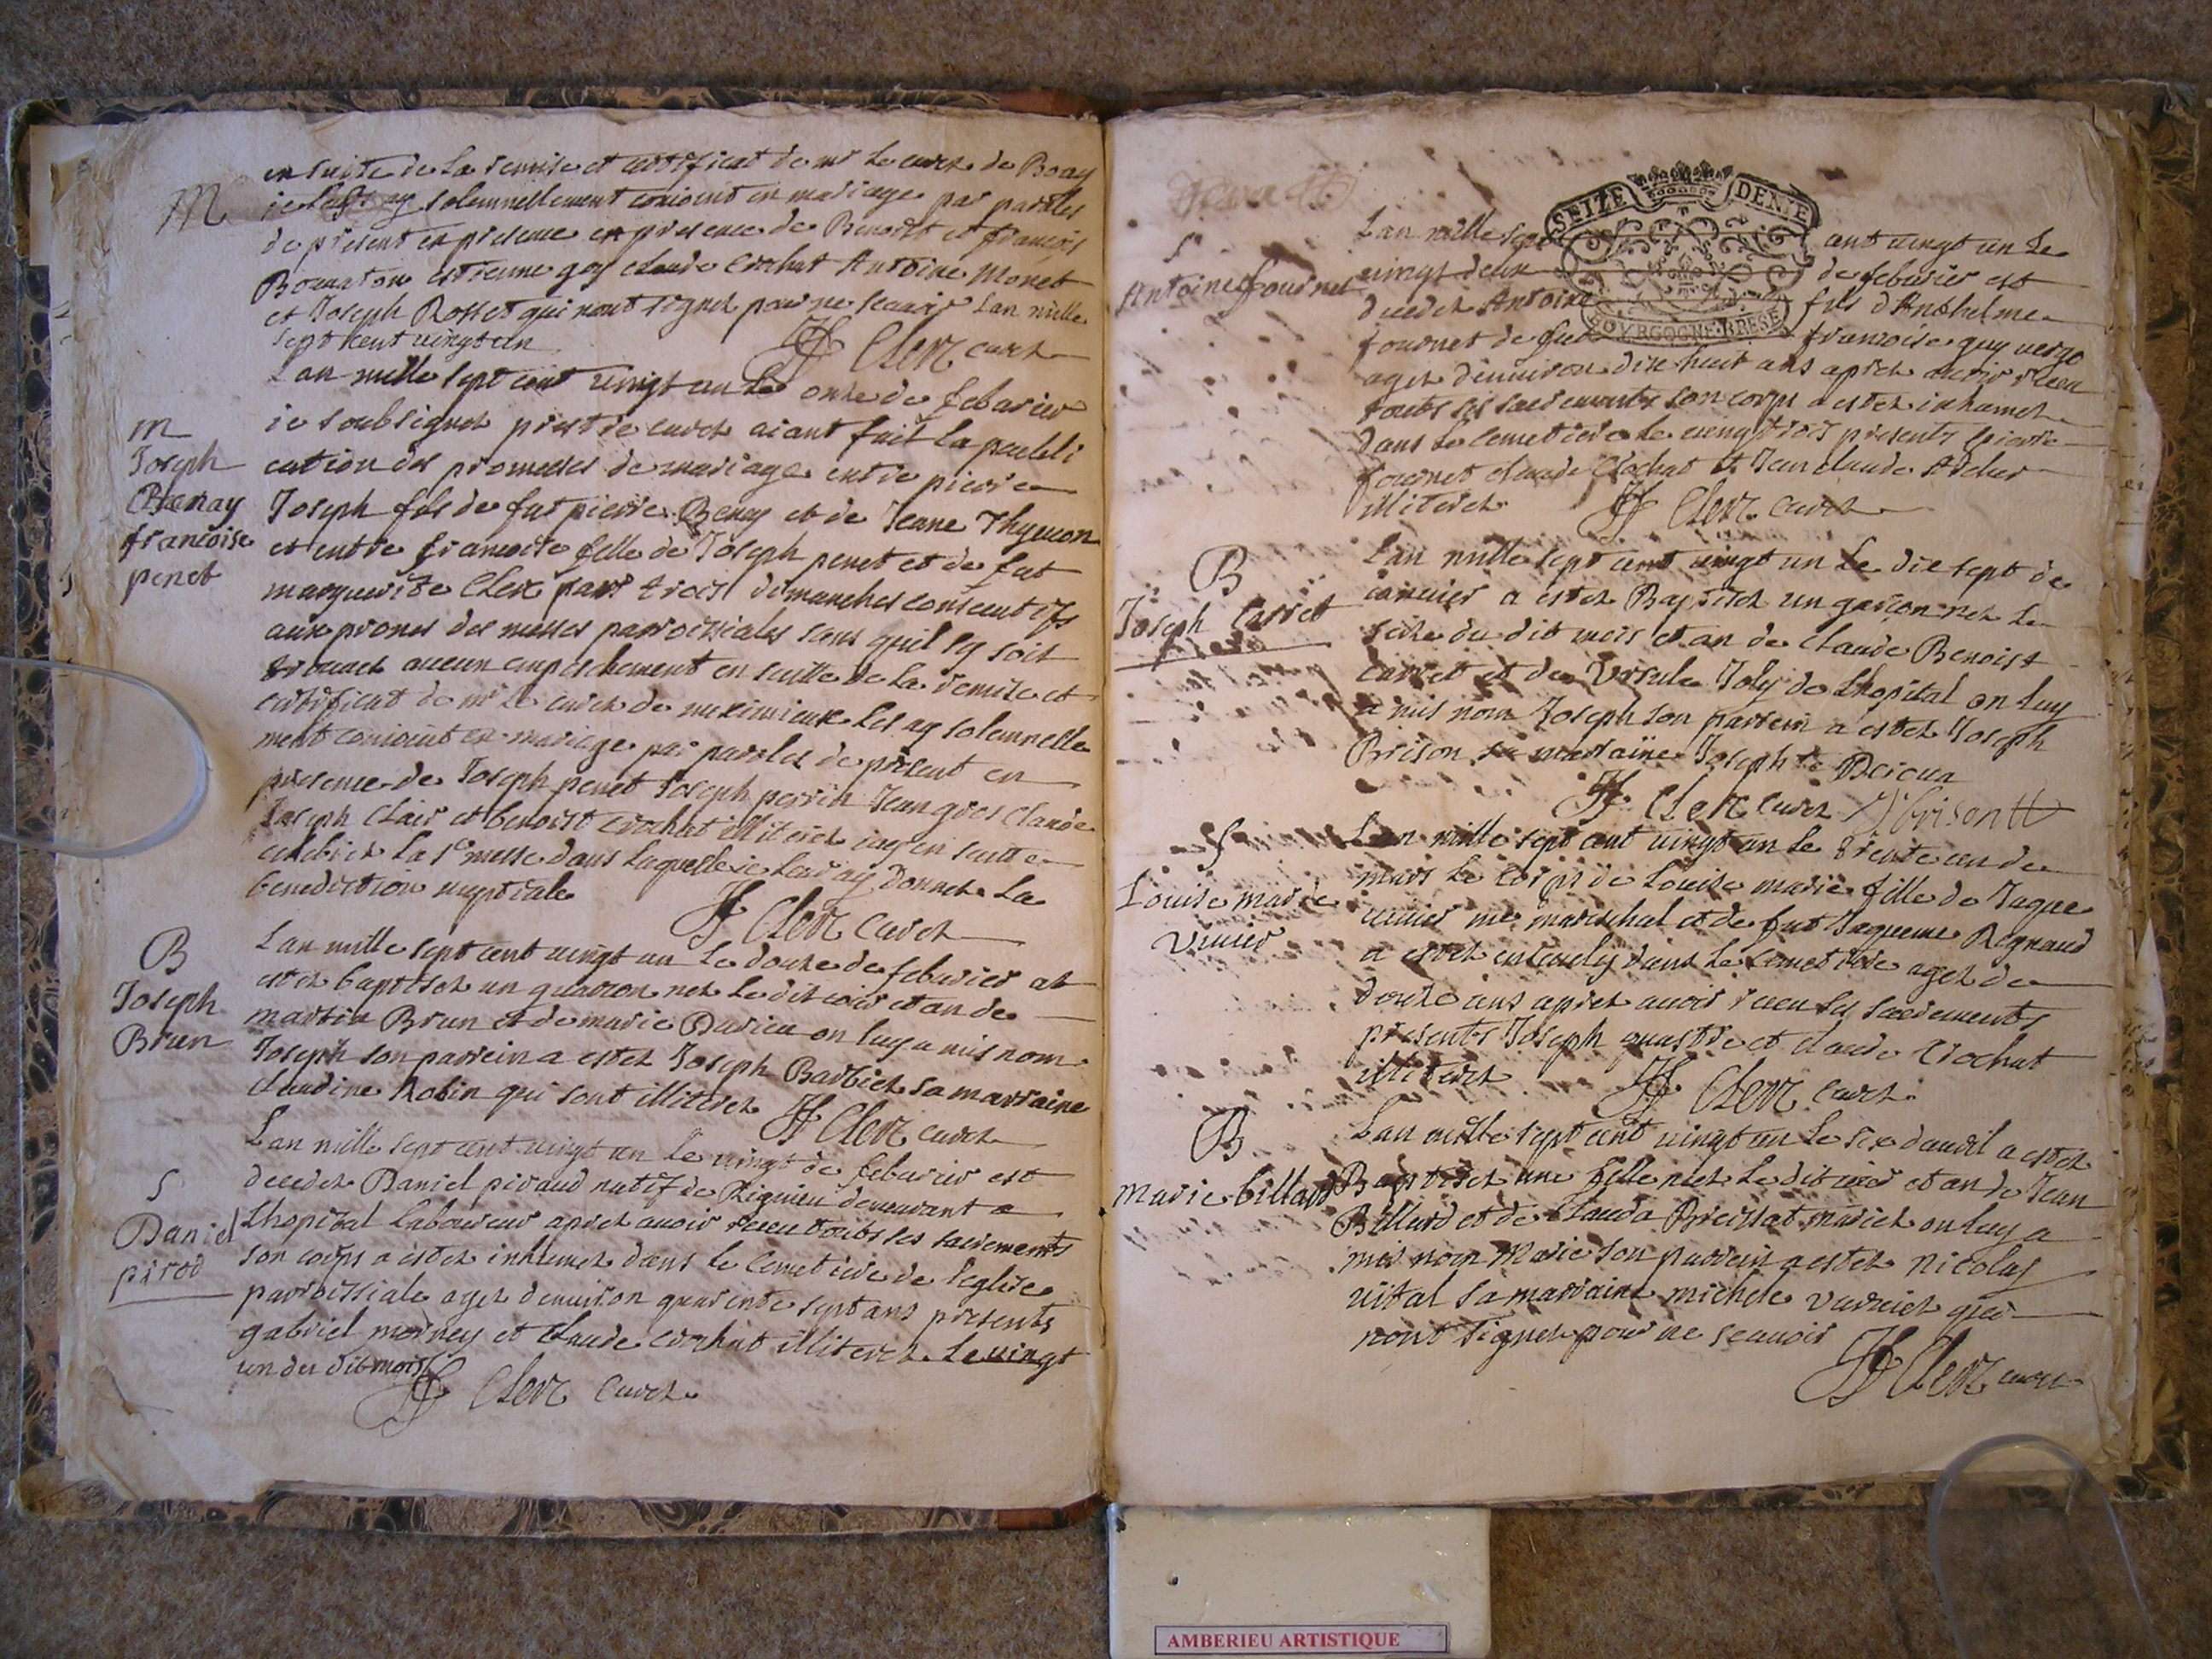 en suite de La remise et certificat de mr Le curez de
M
je solemnellement conioint en mariage par paroles
de present en presence en presence de Benoist et françois
estienne goy claude crochat Antoine Monet
et Joseph Rosset qui nont signez pour ne scavoir Lan mille
sept cent vingt un
Clerc curez
Lan mille sept cent vingt un Le onze de febvrier
ie soubsignez prestre curez aiant fait La publi
M
Joseph
Benay
françoise
penet
cation des promesses de mariage entre pierre
Joseph fils de fut pierre Benay et de Jeane Thymon
et entre françoise fille de Joseph penet et de fut
marguerite Clerc par trois dimanches consecutifs
aux prones des messes parroissiales sans quil sy soit
trouvez aucun empeschement en suitte de La remise et
certificat de mr Le curez de meximieux Les ay solemnelle
ment conioint en mariage par paroles de present en
presence de Joseph penet Joseph perrin Jean gros Claude
Joseph Clair et benoist crochat illiterez iay en suitte
celebrez La ste messe dans Laquelle ie Leur ay Donnez La
benediction nuptiale
Clerc Curez
B
Joseph
Brun
Lan mille sept cent vingt un Le douze de febvrier at
estez baptisez un guarcon nez Le dit iour et an de
martin Brun et de marie Darieu on luy a mis nom
Joseph son parrein a estez Joseph Barbiet sa marraine
claudine Robin qui sont illiterez
Clerc curez
Lan mille sept cent vingt un Le vingt de febvrier est
S
Daniel
pirod
decedez Daniel piraud natif de Rignieu demeurant a
Lhopital Laboureur aprez avoir receu touts les sacrements
son corps a estez inhumez dans le Cemetiere de leglise
parroissiale agez denviron quarente sept ans presents
gabriel mornay et claude crochat illiterez Le vingt
un du dit mois
Clerc Curez
SEIZE DENIE
BOVRGOGNE BRESE
S
Antoine fournet
Lan mille sept ant vingt un Le
vingt deux de febvrier est
decedez Antoine fils d Anthelme
fournet de fut françoise guy
agez denviron dix huit ans aprez avoir receu
touts ses sacrements son corps a estez inhumez
dans Le Cemetiere Le vengt trois presents pierre
fournet claude Crochat et Jean claude
illiterez
Clerc Curez
B
Joseph Carret
Lan mille sept cent vingt un Le dix sept de
ianvier a estez Baptisez un garcon nez Le
seize du dit mois et an de Claude Benoist
carret et de Ursule Joly de Lhopital on luy
a mis nom Joseph son parrein a estez Joseph
Brison sa marraine Josephte
Clerc Curez Jbrison
S
Louise marie
Vivier
Lan mille sept cent vingt un le trente un de
mars Le corps de Louise marie fille de Jaque
vivier me mareschal et de fut Jaqueme Regnaud
a estez ensevely dans Le Cemetiere agez de
douze ans aprez avoir receu les sacrements
presents Joseph et claude Crochat
illiterez
Clerc Curez
B
Marie billard
Lan mille sept cent vingt un Le six davril a estez
Baptisez une fille nez Le dit iour et an de Jean
Billard et de Clauda mariez on luy a
mis nom Marie son parrein a estez nicolas
vital sa marraine michele qui
nont signez pour ne scavoir
Clerc curez
AMBERIEU ARTISTIQUE